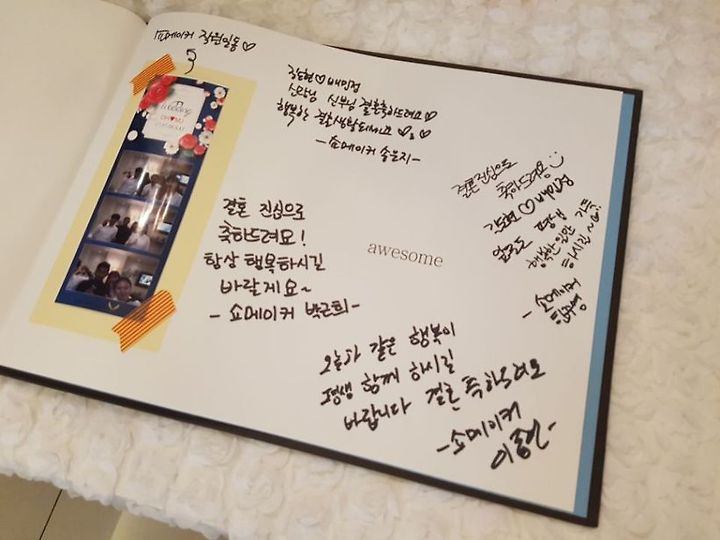 쇼메이커 직원일동♡
김도현♡배민정
신랑님 신부님 결혼축하드려요♡
행복한 결혼생활되세요
-쇼메이커 송은지-
Wedding
결혼 진심으로
축하드려요!
항상 행복하시길
바랄게요~
- 쇼메이커 박근희-
awesome
결혼진심으로
축하드려요
김도현♡배민정
앞으로 평생
행복한일만 가득
하시길
- 쇼메이커
오늘과 같은 행복이
평생 함께 하시길
바랍니다 결혼 축하드려요
-쇼메이커
이종현-